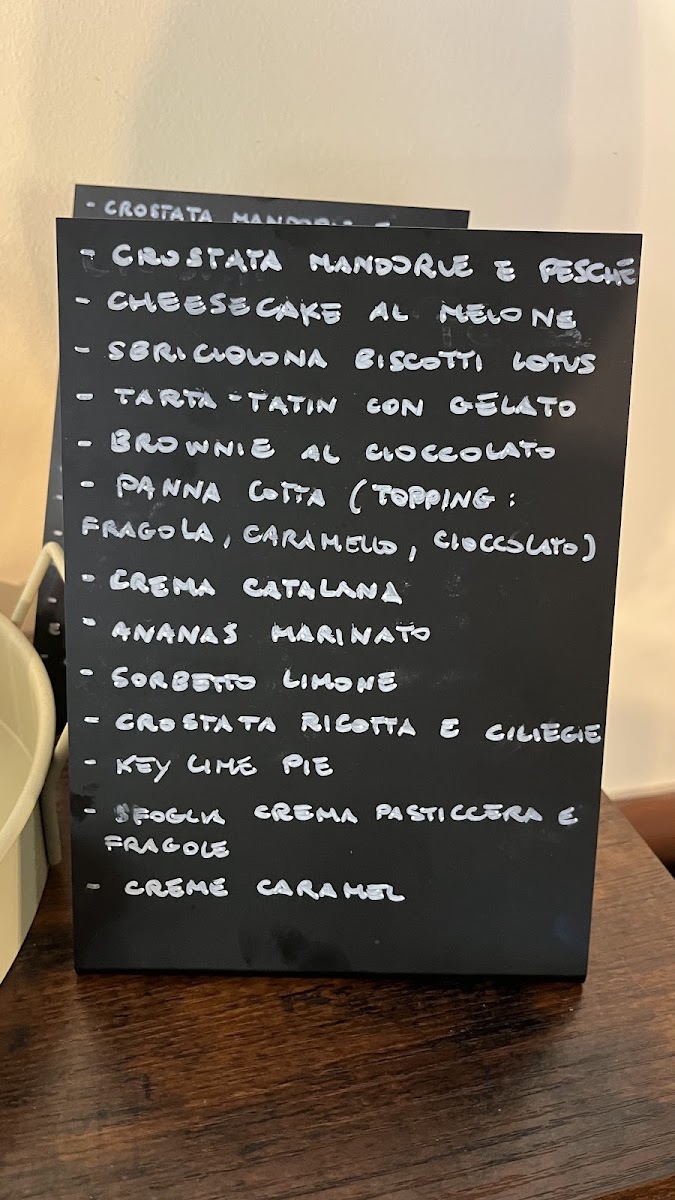 - CROSTATA MANDORLE E
- CROSTATA MANDORLE E PESCHE
- CHEESECAKE AL MELONE
- SBRICIOLONA BISCOTTI LOTUS
- TARTA-TATIN CON GELATO
- BROWNIE AL CIOCCOLATO
- PANNA COTTA (TOPPING:
FRAGOLA, CARAMELLO, CIOCCOLATO)
- CREMA CATALANA
- ANANAS MARINATO
- SORBETTO LIMONE
- CROSTATA RICOTTA E CILIEGIE
- KEY LIME PIE
- SFOGLIA CREMA PASTICCERA E
FRAGOLE
- CREME CARAMEL